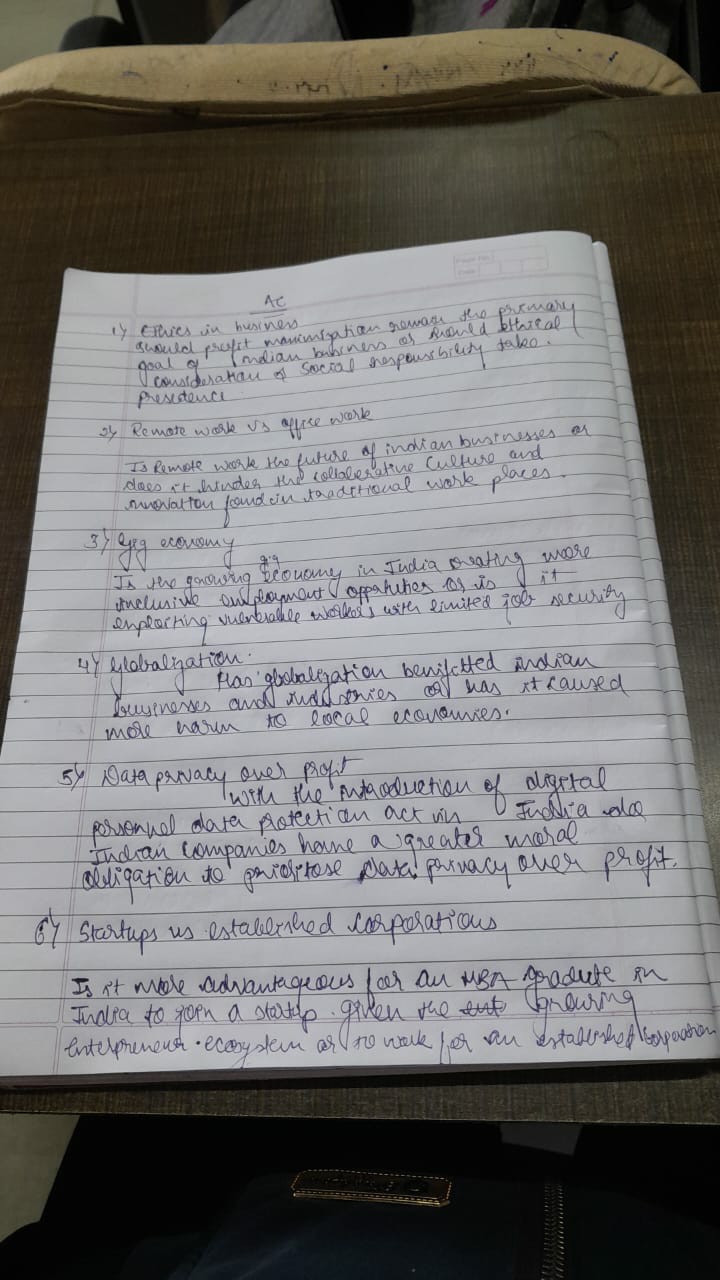 AC
1) Ethics in business
should profit maximization remain the primary
goal of Indian business or should Ethical
consideration of social responsibility take
presedence
2) Remote work vs office work
Is Remote work the future of indian businesses or
does it hinder the collaberative culture and
innovation found in traditional work places.
3) Gig economy
Is the growing gig economy in India creating more
inclusive employment or is it
exploiting vulnerable workers with limited job security
4) Globalization.
Has globalization benifitted indian
businesses and industries or has it caused
more harm to local economies.
5) Data privacy over profit
with the introduction of digital
personnel data protection act in India do
Indian companies have a greater moral
obligation to data privacy over profit.
6) Startups vs established corporations
Is it more advantageous for an MBA gradute in
India to join a startup. given the growing
enterpreneur. ecosystem or to work for an established corporation